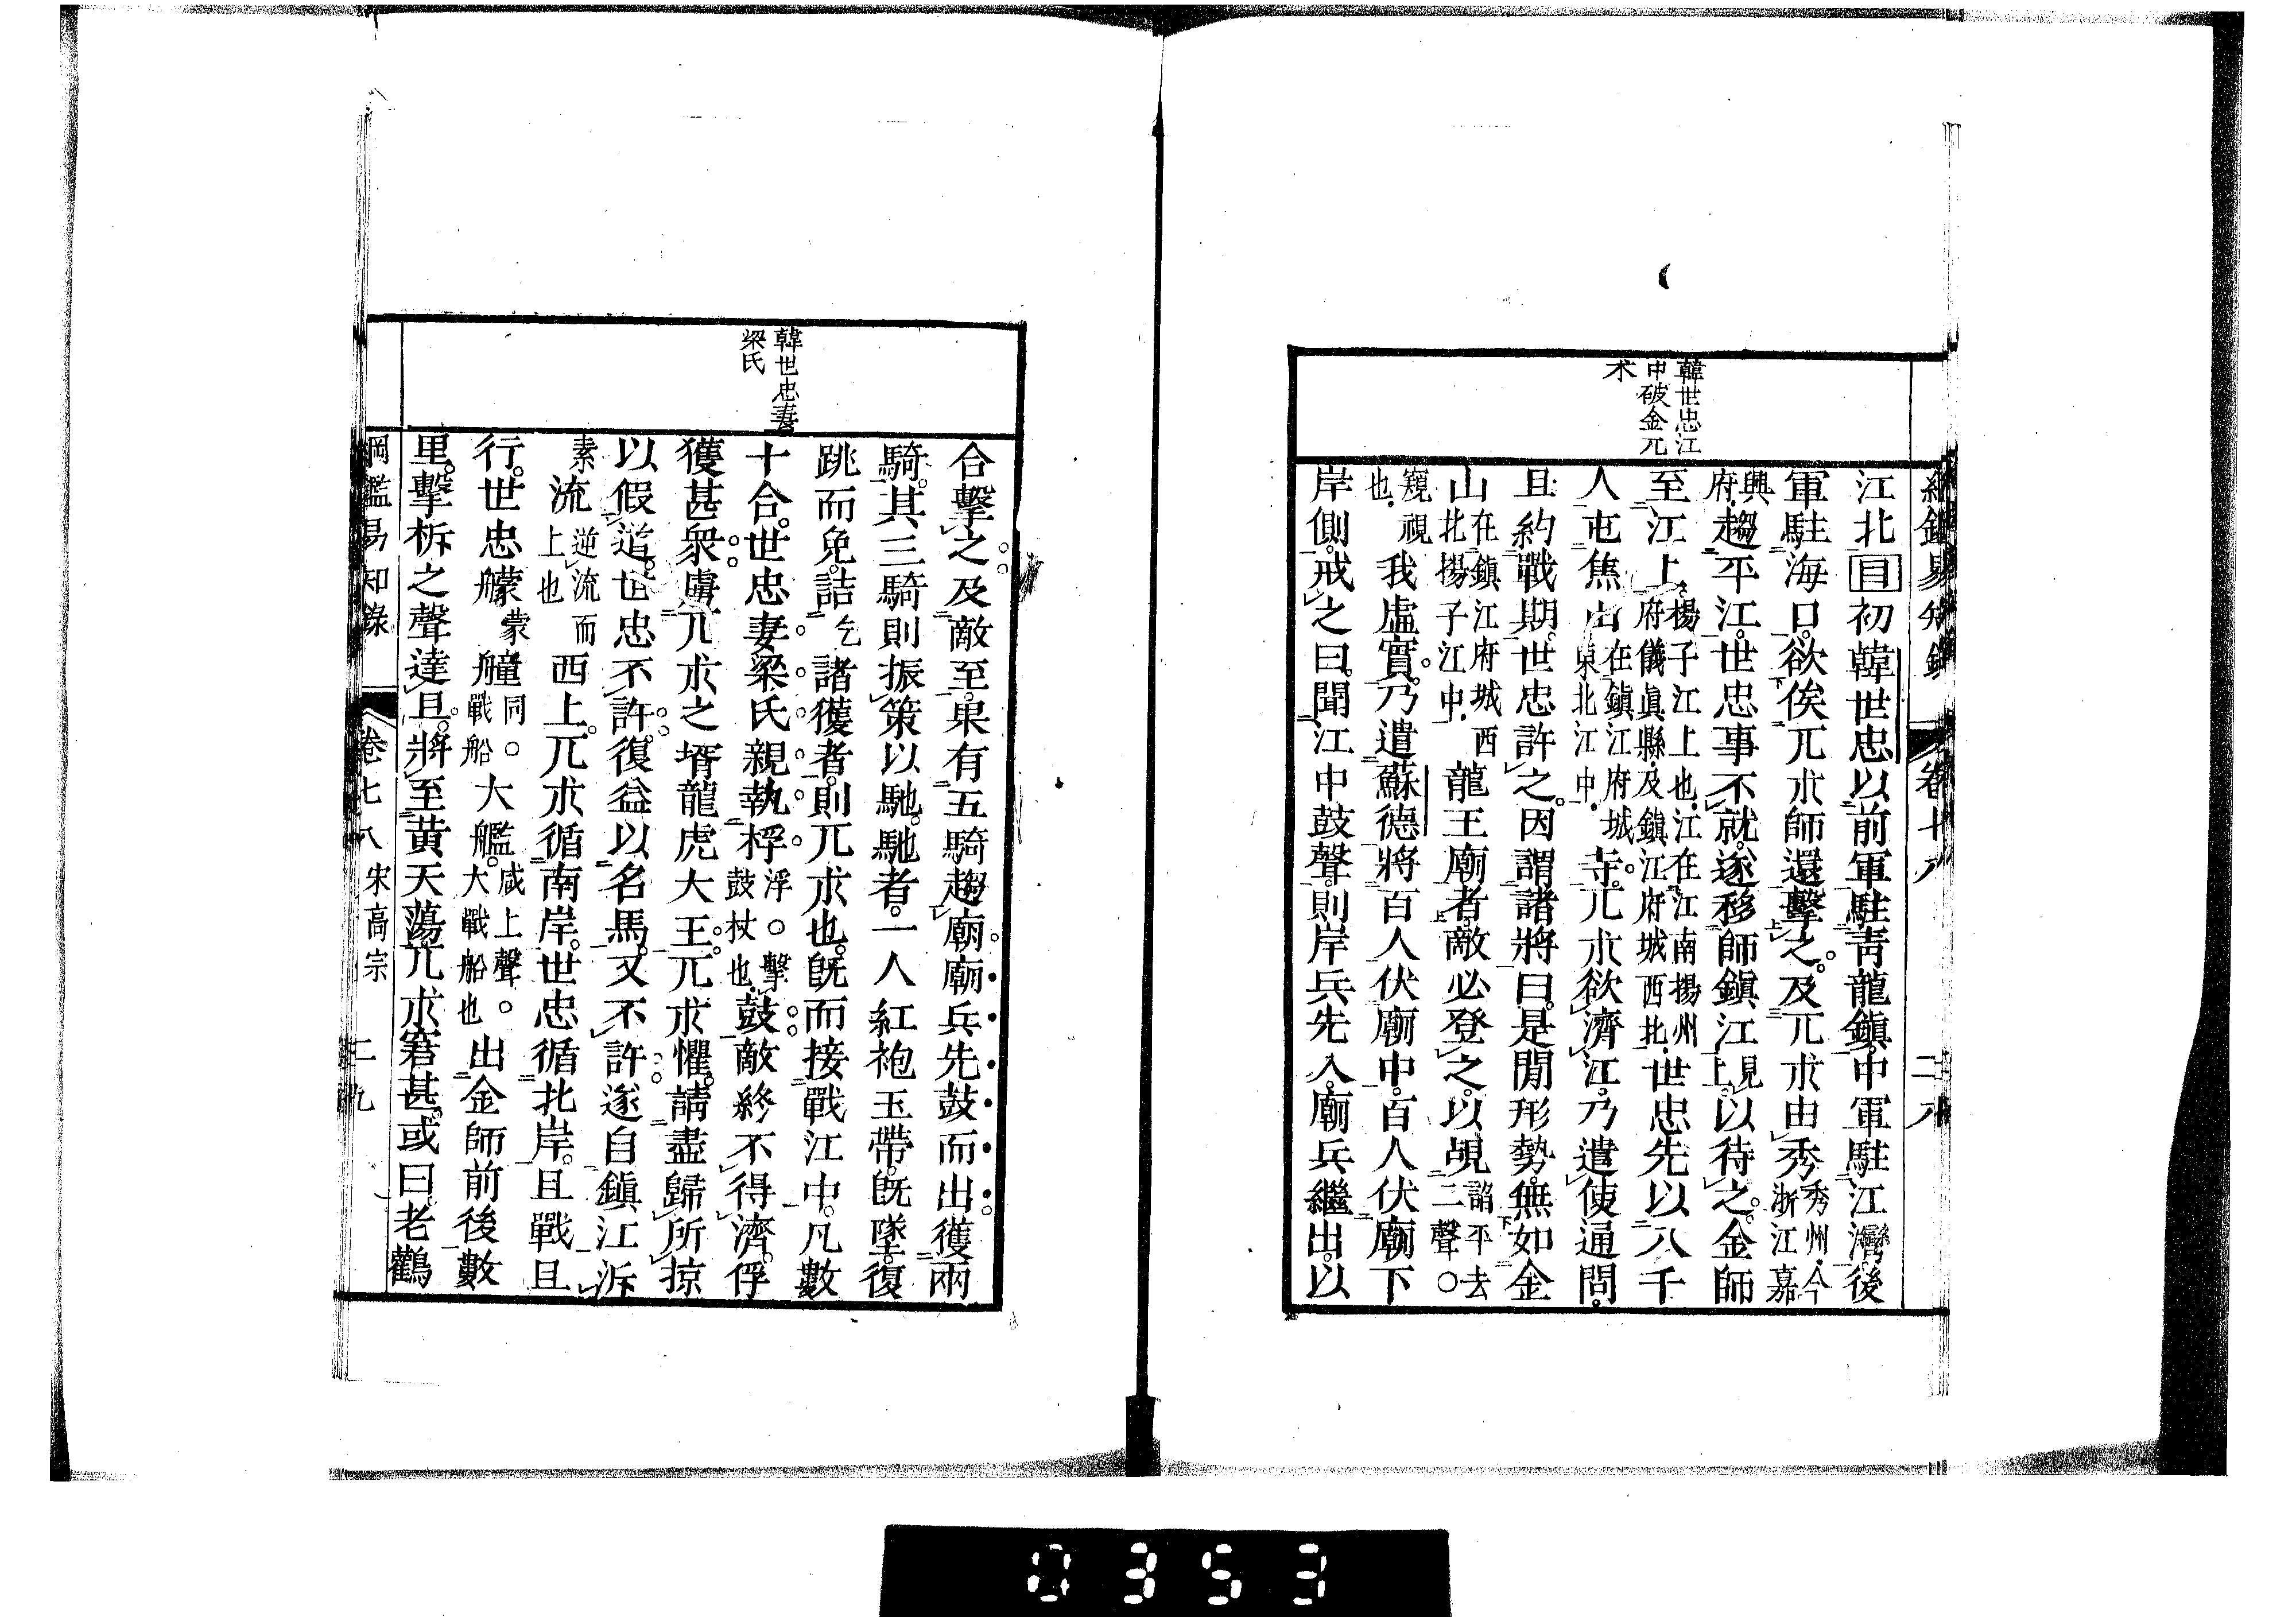 韓世忠江
中破金兀
朮
江北目初韓世忠以前軍駐青龍鎭。中軍駐江灣後
軍駐海口。欲俟兀朮師還擊之。及兀朮由秀秀州。今浙江嘉
興府。趨平江。世忠事不就。遂移師鎭江見上。以待之。金師
至江上。楊子江上也。江在江南揚州府儀眞縣。及鎭江府城西北。世忠先以八千
人屯焦山在鎭江府城東北江中。寺。兀朮欲濟江。乃遣使通問。
且約戰期。世忠許之。因謂諸將曰。是閒形勢。無如金
山在鎭江府城西北揚子江中。龍王廟者。敵必登之。以覘諂平去二聲○
窺視也。我虛實。乃遣蘇德將百人伏廟中。百人伏廟下
岸側。戒之曰。聞江中鼓聲。則岸兵先入。廟兵繼出。以
韓世忠妻
梁氏
合擊之。及敵至。果有五騎趨廟。廟兵先鼓而出。獲兩
騎。其三騎則振策以馳。馳者。一人紅袍玉帶。旣墜。復
跳而免。詰乞諸獲者。則兀朮也。旣而接戰江中。凡數
十合。世忠妻梁氏親執桴浮。○擊鼓杖也。鼓。敵終不得濟。俘
獲甚衆。虜兀朮之壻龍虎大王。兀朮懼。請盡歸所掠
以假道。世忠不許。復益以名馬。又不許。遂自鎭江泝
素流逆流而上也西上。兀朮循南岸。世忠循北岸。且戰且
行。世忠艨蒙艟同。○戰船大艦。咸上聲。○大戰船也出金師前後數
里。擊柝之聲達旦。將至黃天蕩。兀朮窘甚。或曰。老鸛
綱鑑易知錄 卷七八宋高宗 二九